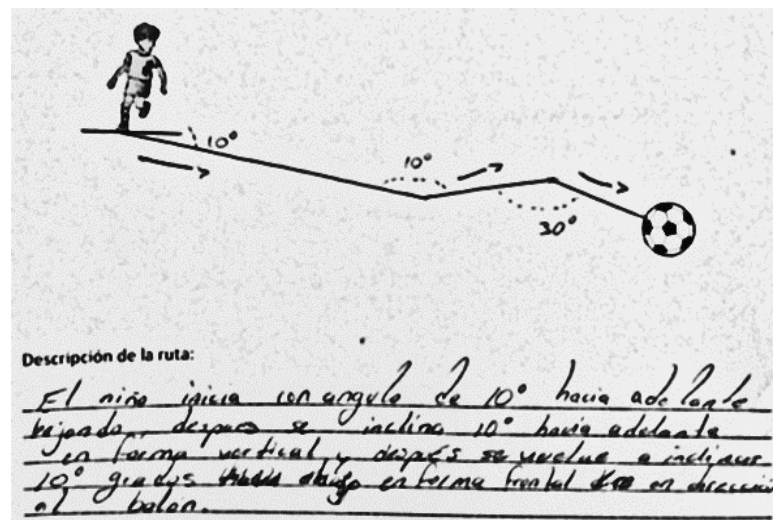 10°
10°
30°
Descripción de la ruta:
El niño inicia con angulo de 10° hacia adelante
bajando, despues se inclina 10° hacia adelante
en forma vertical, y después se vuelve a inclinar
10° grados abajo en forma frontal en direccion
al balon.